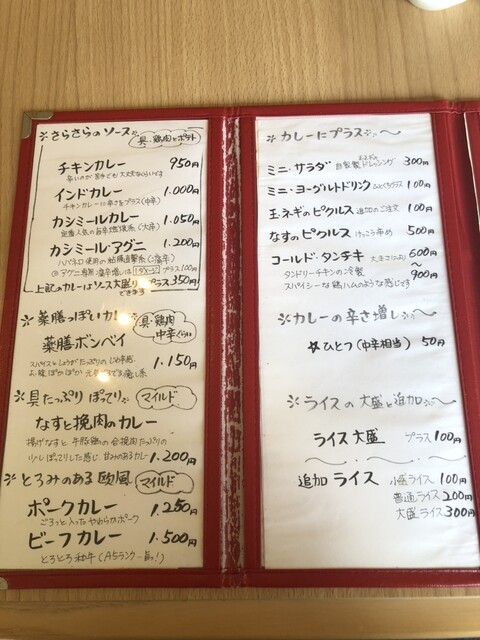 ※さらさらのソース
具・鶏肉とポテト
チキンカレー 950円
辛いのが苦手でも大丈夫ならいです
インドカレー 1.000円
チキンカレーに辛さをプラス(中辛)
カシミールカレー 1.050円
定番人気の旨辛燃焼系(大辛)
カシミール・アグニ 1.200円
ハバネロ使用の
プラス100円
上記のカレーはソース大盛り プラス350円
できます
※薬膳っぽいカレー
具・鶏肉
中辛くらい
薬膳ボンベイ
1.150円
スパイスとしょうがたっぷりの
※具たっぷり ぽってり マイルド
なすと挽肉のカレー
揚げなすと 牛豚鶏の合挽肉たっぷりの
少しぽってりした感じ 甘みのあるカレー 1.200円
※とろみのある欧風 マイルド
ポークカレー 1.250円
ごろっと入ったやわらかポーク
ビーフカレー 1.500円
とろとろ和牛(A5ランク
※カレーにプラス※〜
ミニ・サラダ 自家製ドレッシング 300円
ミニ・ヨーグルトドリンク プラス 100円
玉ネギのピクルス 追加のご注文 100円
なすのピクルス けっこう辛め 500円
コールド・タンチキ 大きさにより 600円
〜
900円
タンドリーチキンの冷製
スパイシーな鶏ハムのような感じです
※カレーの辛さ増し※〜
☆ひとつ(中辛相当) 50円
※ライスの大盛と追加※〜
ライス大盛 プラス100円
追加ライス 小盛ライス 100円
普通ライス 200円
大盛ライス 300円